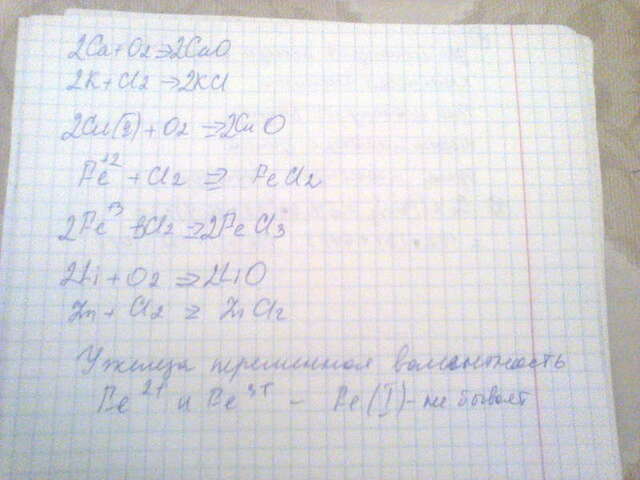 2Ca+O2⇒2CaO
2K+Cl2→2KCl
2Cu(II)+O2⇒2CuO
Fe+2+Cl2 ⇒ FeCl2
2Fe+3+3Cl2⇒2FeCl3
2Li+O2⇒2LiO
Zn+Cl2 = ZnCl2
У железа переменная валентность
Fe2+ и Fe3+ – Fe(I)-не бывает